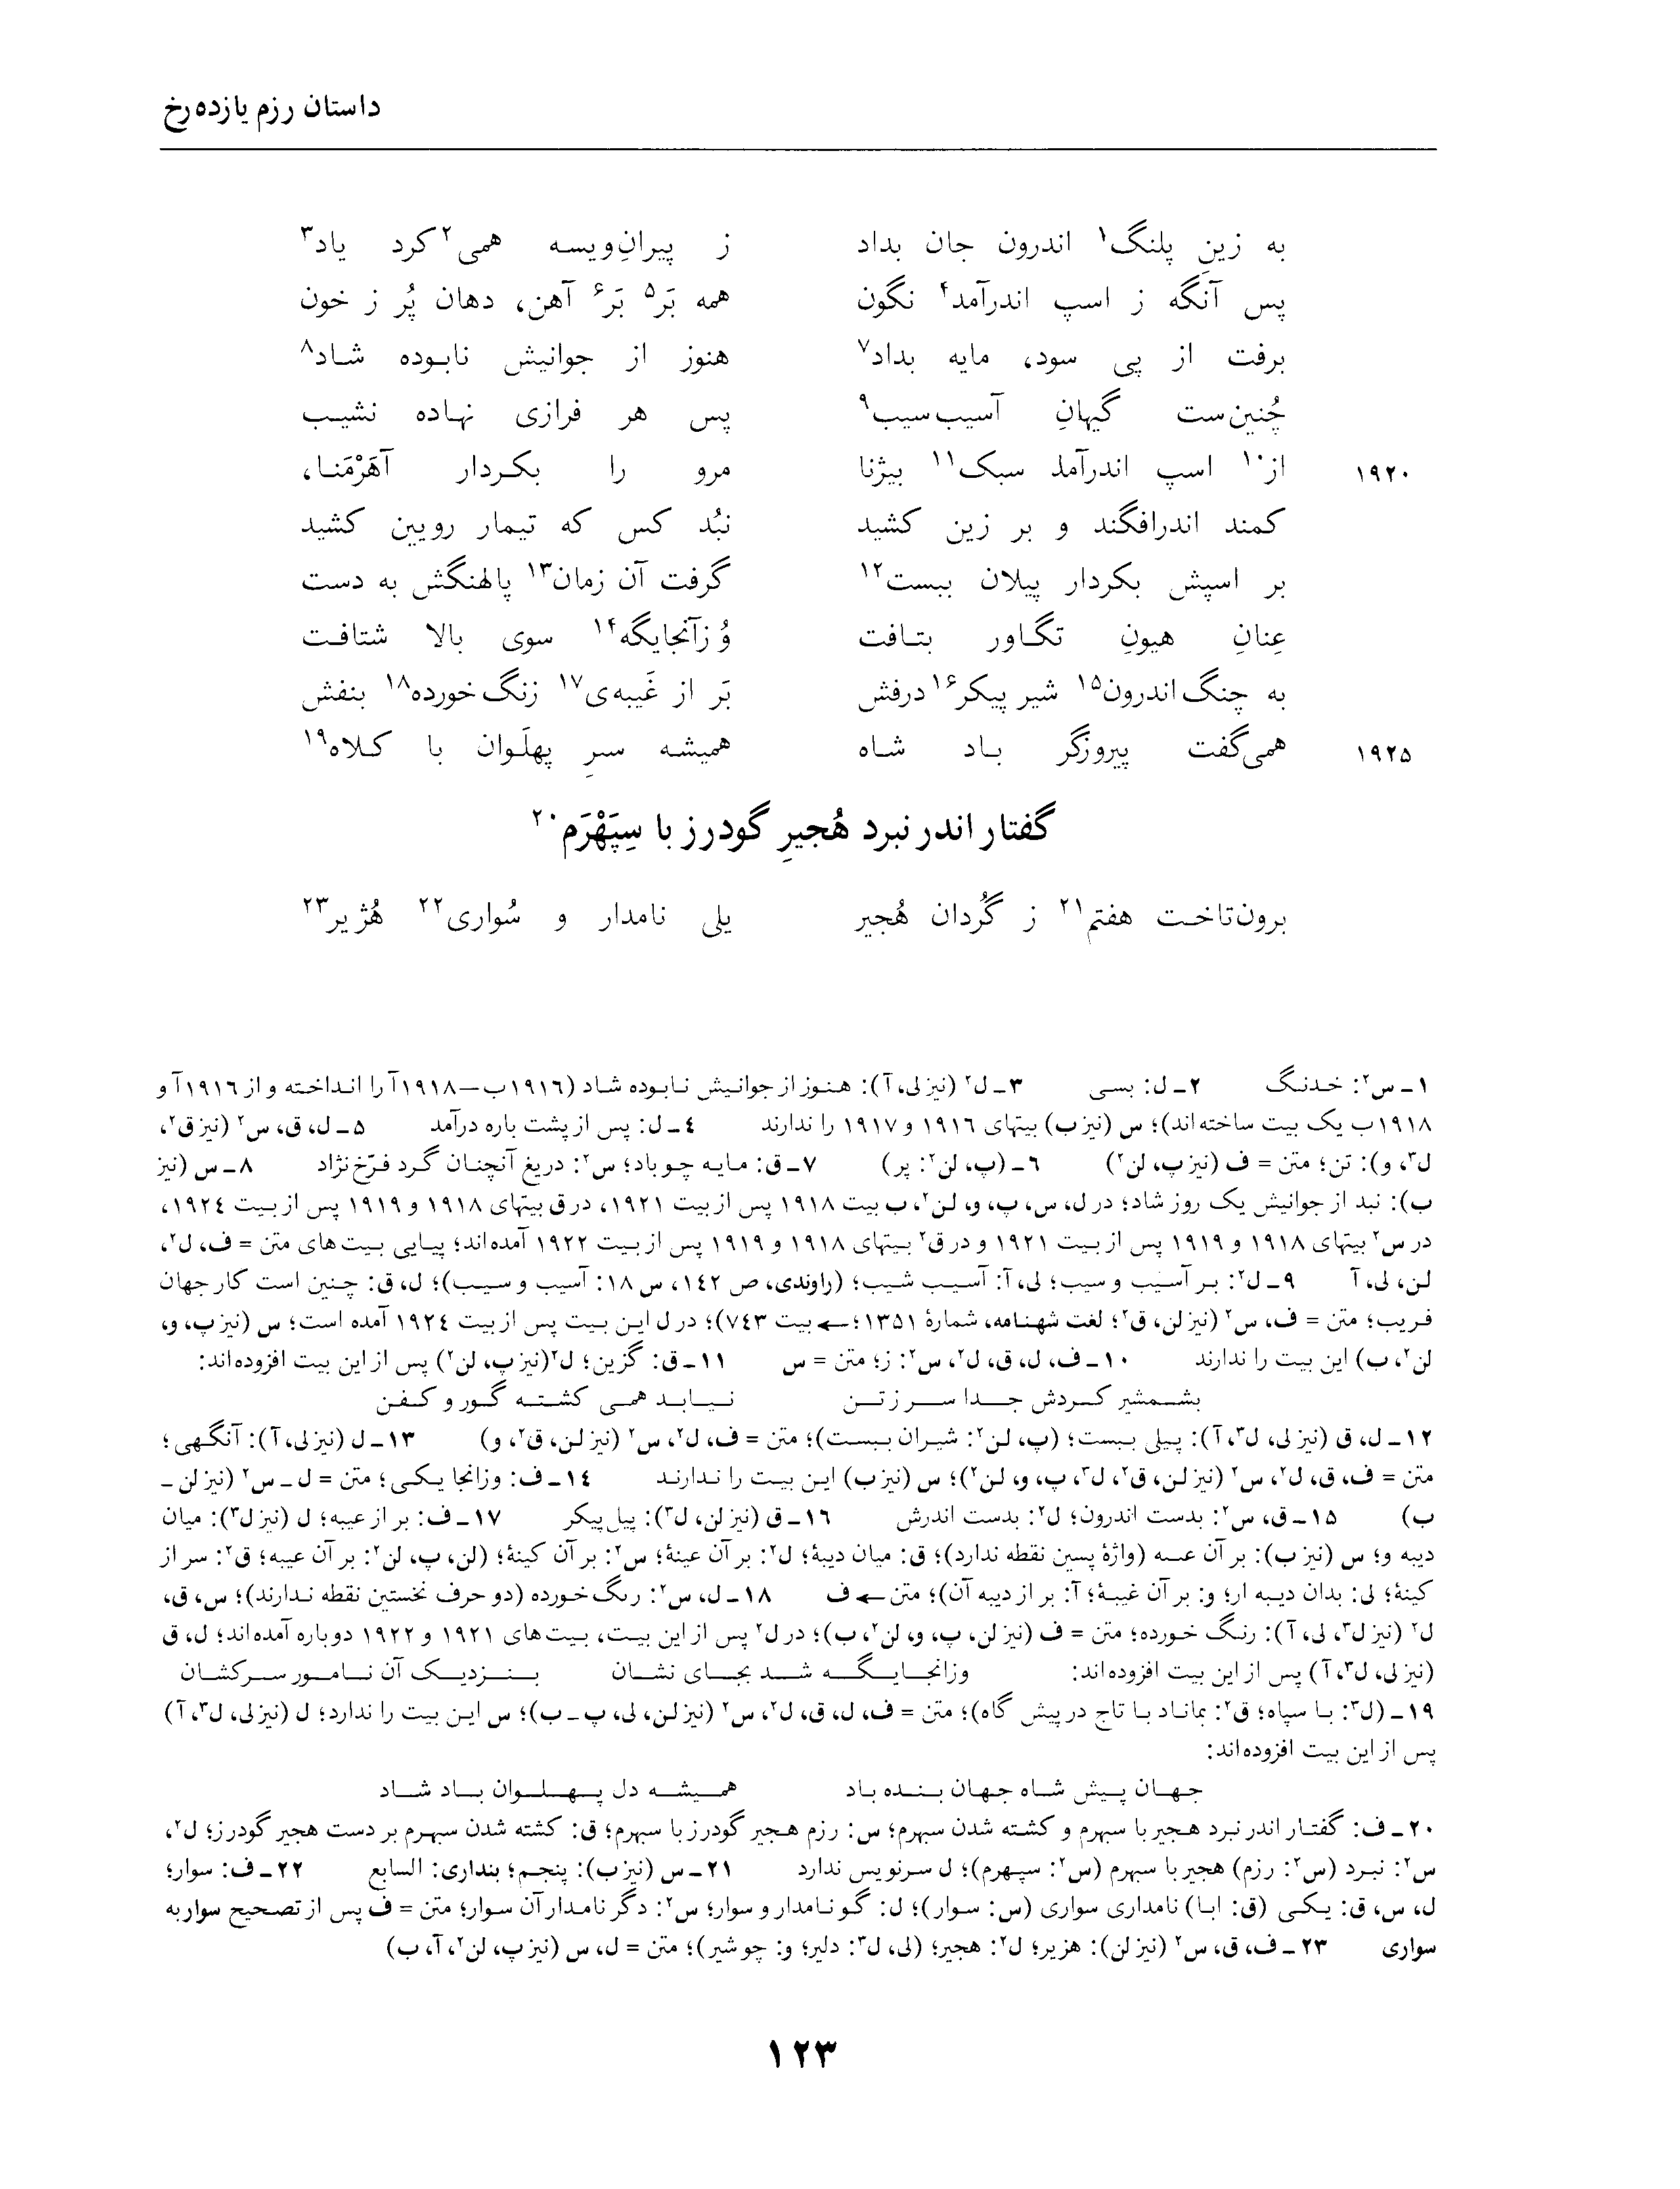 داستان رزم یازده رخ
به زینِ پلنگ۱ اندرون جان بداد ز پیرانِ ویسه همی۲ کرد یاد۳
پس آنگه ز اسپ اندرآمد۴ نگون همه بَر۵ بَر۶ آهن، دهان پُر ز خون
برفت از پی سود، مایه بداد۷ هنوز از جوانیش نابوده شاد۸
چُنین‌ست گیهانِ آسیب‌سیب۹ پس هر فرازی نهاده نشیب
۱۹۲۰ از۱۰ اسپ اندرآمد سبک۱۱ بیژنا مرو را بکردار آهَرْمَنا،
کمند اندرافگند و بر زین کشید نبُد کس که تیمار رویین کشید
بر اسپش بکردار پیلان ببست۱۲ گرفت آن زمان۱۳ پالهنگش به دست
عِنانِ هیونِ تگاور بتافت وُزآنجایگه۱۴ سوی بالا شتافت
به چنگ اندرون۱۵ شیر پیکر۱۶ درفش بَر از غَیبه‌ی۱۷ زنگ خورده۱۸ بنفش
۱۹۲۵ همی‌گفت پیروزگر باد شاه همیشه سرِ پهلَوان با کلاه۱۹
گفتار اندر نبرد هُجیرِ گودرز با سِپَهْرَم۲۰
برون‌تاخت هفتم۲۱ ز گُردان هُجیر یلی نامدار و سُواری۲۲ هُژیر۲۳
۱ـ س۲: خدنگ ۲ـ ل: بسی ۳ـ ل۲ (نیز لی، آ): هنوز از جوانیش نابوده شاد (۱۹۱٦ب—۱۹۱۸آ را انداخته و از ۱۹۱٦آ و
۱۹۱۸ب یک بیت ساخته‌اند)؛ س (نیز ب) بیتهای ۱۹۱٦ و ۱۹۱۷ را ندارند ٤ـ ل: پس از پشت باره درآمد ۵ـ ل، ق، س۲ (نیز ق۲،
ل۳، و): تن؛ متن = ف (نیز پ، لن۲) ٦ـ (پ، لن۲: پر) ۷ـ ق: مایه چو باد؛ س۲: دریغ آنچنان گرد فرّخ‌نژاد ۸ـ س (نیز
ب): نبد از جوانیش یک روز شاد؛ در ل، س، پ، و، لن۲، ب بیت ۱۹۱۸ پس از بیت ۱۹۲۱، در ق بیتهای ۱۹۱۸ و ۱۹۱۹ پس از بیت ۱۹۲٤،
در س۲ بیتهای ۱۹۱۸ و ۱۹۱۹ پس از بیت ۱۹۲۱ و در ق۲ بیتهای ۱۹۱۸ و ۱۹۱۹ پس از بیت ۱۹۲۲ آمده‌اند؛ پیایی بیت‌های متن = ف، ل۲،
لن، لی، آ ۹ـ ل۲: بر آسیب و سیب؛ لی، آ: آسیب شیب؛ (راوندی، ص ۱٤۲، س ۱۸: آسیب و سیب)؛ ل، ق: چنین است کار جهان
فریب؛ متن = ف، س۲ (نیز لن، ق۲؛ لغت شهنامه، شمارهٔ ۱۳۵۱؛← بیت ۷٤۳)؛ در ل این بیت پس از بیت ۱۹۲٤ آمده است؛ س (نیز پ، و،
لن۲، ب) این بیت را ندارند ۱۰ـ ف، ل، ق، ل۲، س۲: ز؛ متن = س ۱۱ـ ق: گزین؛ ل۲ (نیز پ، لن۲) پس از این بیت افزوده‌اند:
بشمشیر کردش جدا سر ز تن نیابد همی کشته گور و کفن
۱۲ـ ل، ق (نیز لی، ل۳، آ): پیلی ببست؛ (پ، لن۲: شیران ببست)؛ متن = ف، ل۲، س۲ (نیز لن، ق۲، و) ۱۳ـ ل (نیز لی، آ): آنگهی؛
متن = ف، ق، ل۲، س۲ (نیز لن، ق۲، ل۳، پ، و، لن۲)؛ س (نیز ب) این بیت را ندارند ۱٤ـ ف: وزانجا یکی؛ متن = ل ـ س۲ (نیز لن ـ
ب) ۱۵ـ ق، س۲: بدست اندرون؛ ل۲: بدست اندرش ۱٦ـ ق (نیز لن، ل۳): پیل پیکر ۱۷ـ ف: بر از عیبه؛ ل (نیز ل۳): میان
دیبه و؛ س (نیز ب): بر آن عـىـه (واژهٔ پسین نقطه ندارد)؛ ق: میان دیبهٔ؛ ل۲: بر آن عینهٔ؛ س۲: بر آن کینهٔ؛ (لن، پ، لن۲: بر آن عیبه؛ ق۲: سر از
کینهٔ؛ لی: بدان دیبه ار؛ و: بر آن غیبهٔ؛ آ: بر از دیبه آن)؛ متن ← ف ۱۸ـ ل، س۲: رىگ خورده (دو حرف نخستین نقطه ندارند)؛ س، ق،
ل۲ (نیز ل۳، لی، آ): رنگ خورده؛ متن = ف (نیز لن، پ، و، لن۲، ب)؛ در ل۲ پس از این بیت، بیت‌های ۱۹۲۱ و ۱۹۲۲ دوباره آمده‌اند؛ ل، ق
(نیز لی، ل۳، آ) پس از این بیت افزوده‌اند: وزانجایگه شد بجای نشان بنزدیک آن نامور سرکشان
۱۹ـ (ل۳: با سپاه؛ ق۲: بماناد با تاج در پیش گاه)؛ متن = ف، ل، ق، ل۲، س۲ (نیز لن، لی، پ ـ ب)؛ س این بیت را ندارد؛ ل (نیز لی، ل۳، آ)
پس از این بیت افزوده‌اند:
جهان پیش شاه جهان بنده باد همیشه دل پهلوان باد شاد
۲۰ـ ف: گفتار اندر نبرد هجیر با سبهرم و کشته شدن سبهرم؛ س: رزم هجیر گودرز با سبهرم؛ ق: کشته شدن سبهرم بر دست هجیر گودرز؛ ل۲،
س۲: نبرد (س۲: رزم) هجیر با سبهرم (س۲: سپهرم)؛ ل سرنویس ندارد ۲۱ـ س (نیز ب): پنجم؛ بنداری: السابع ۲۲ـ ف: سوار؛
ل، س، ق: یکی (ق: ابا) نامداری سواری (س: سوار)؛ ل: گو نامدار و سوار؛ س۲: دگر نامدار آن سوار؛ متن = ف پس از تصحیح سوار به
سواری ۲۳ـ ف، ق، س۲ (نیز لن): هزیر؛ ل۲: هجیر؛ (لی، ل۳: دلیر؛ و: چو شیر)؛ متن = ل، س (نیز پ، لن۲، آ، ب)
۱۲۳